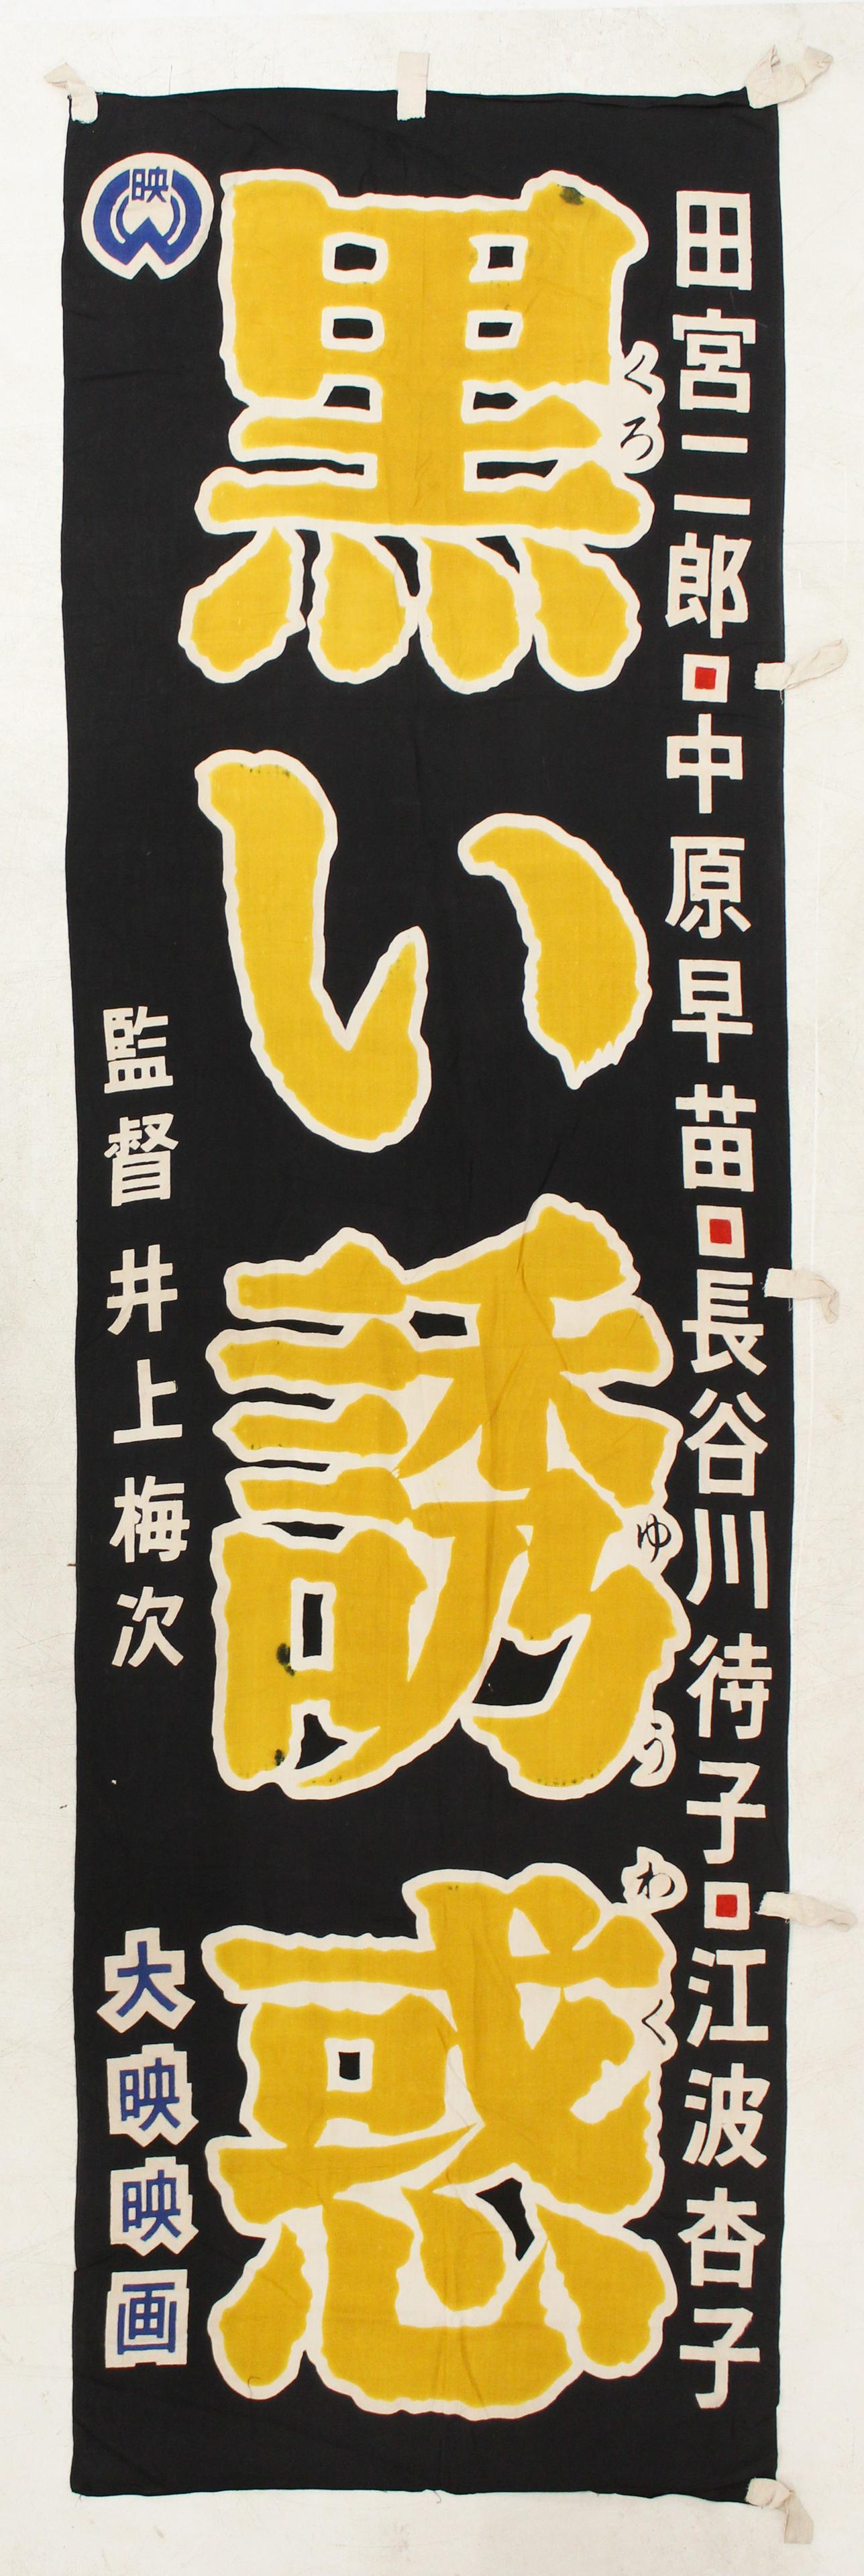 田宮二郎■中原早苗■長谷川待子■江波杏子
黒い誘惑
くろ
ゆうわく
映
監督 井上梅次
大映映画